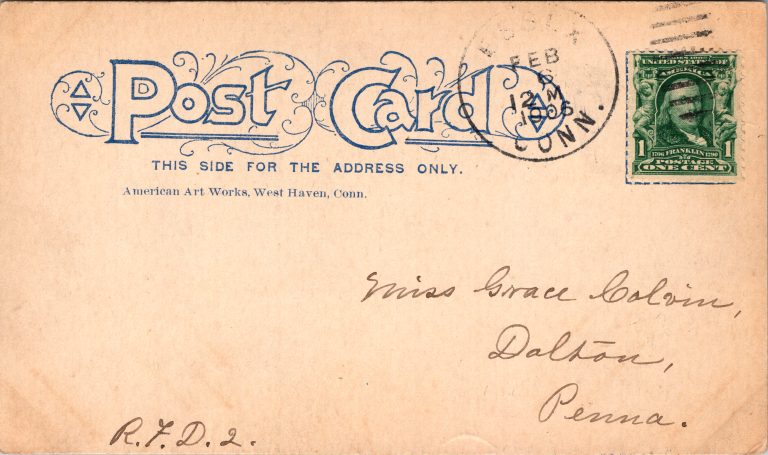 Post Card
THIS SIDE FOR THE ADDRESS ONLY.
American Art Works, West Haven, Conn.
FEB
6
12 M
1906
CONN.
UNITED STATES OF
AMERICA
1 1706 FRANKLIN 1790 1
POSTAGE
ONE CENT
Miss Grace Colvin,
Dalton,
Penna.
R.F.D. 2.